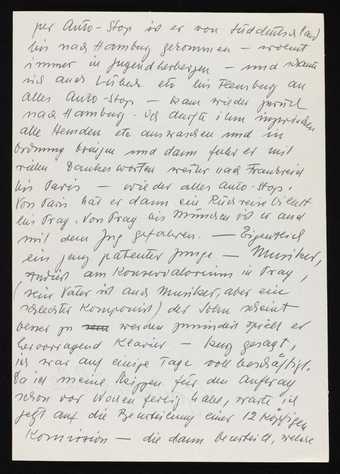 per Auto-Stop ist er von Süddeutschland
bis nach Hamburg gekommen – wohnt
immer in Jugendherbergen – und schaute
sich auch Lübeck etc bis Flensburg an
alles Auto-Stop – kam wieder zurück
nach Hamburg. Ich durfte ihm inzwischen
alle Hemden etc auswaschen und in
Ordnung bringen und dann fuhr er mit
vielen Dankesworten weiter nach Frankreich
bis Paris – wieder alles Auto-Stop.
Von Paris hat er dann ein Rückreise Billett
bis Prag. Von Prag bis München ist er auch
mit dem Zug gefahren. – Eigentlich
ein ganz patenter Junge – Musiker,
studiert am Konservatorium in Prag,
(sein Vater ist auch Musiker, aber eine
schlechter Komponist) der Sohn scheint
besser zu werden zumindest spielt er
hervorragend Klavier – kurz gesagt,
ich war auf einige Tage voll beschäftigt.
Da ich meine Skizzen für den Auftrag
schon vor Wochen fertig habe, warte ich
jetzt auf die Beurteilung einer 12 Köpfigen
Komission – die dann beurteilt, welche